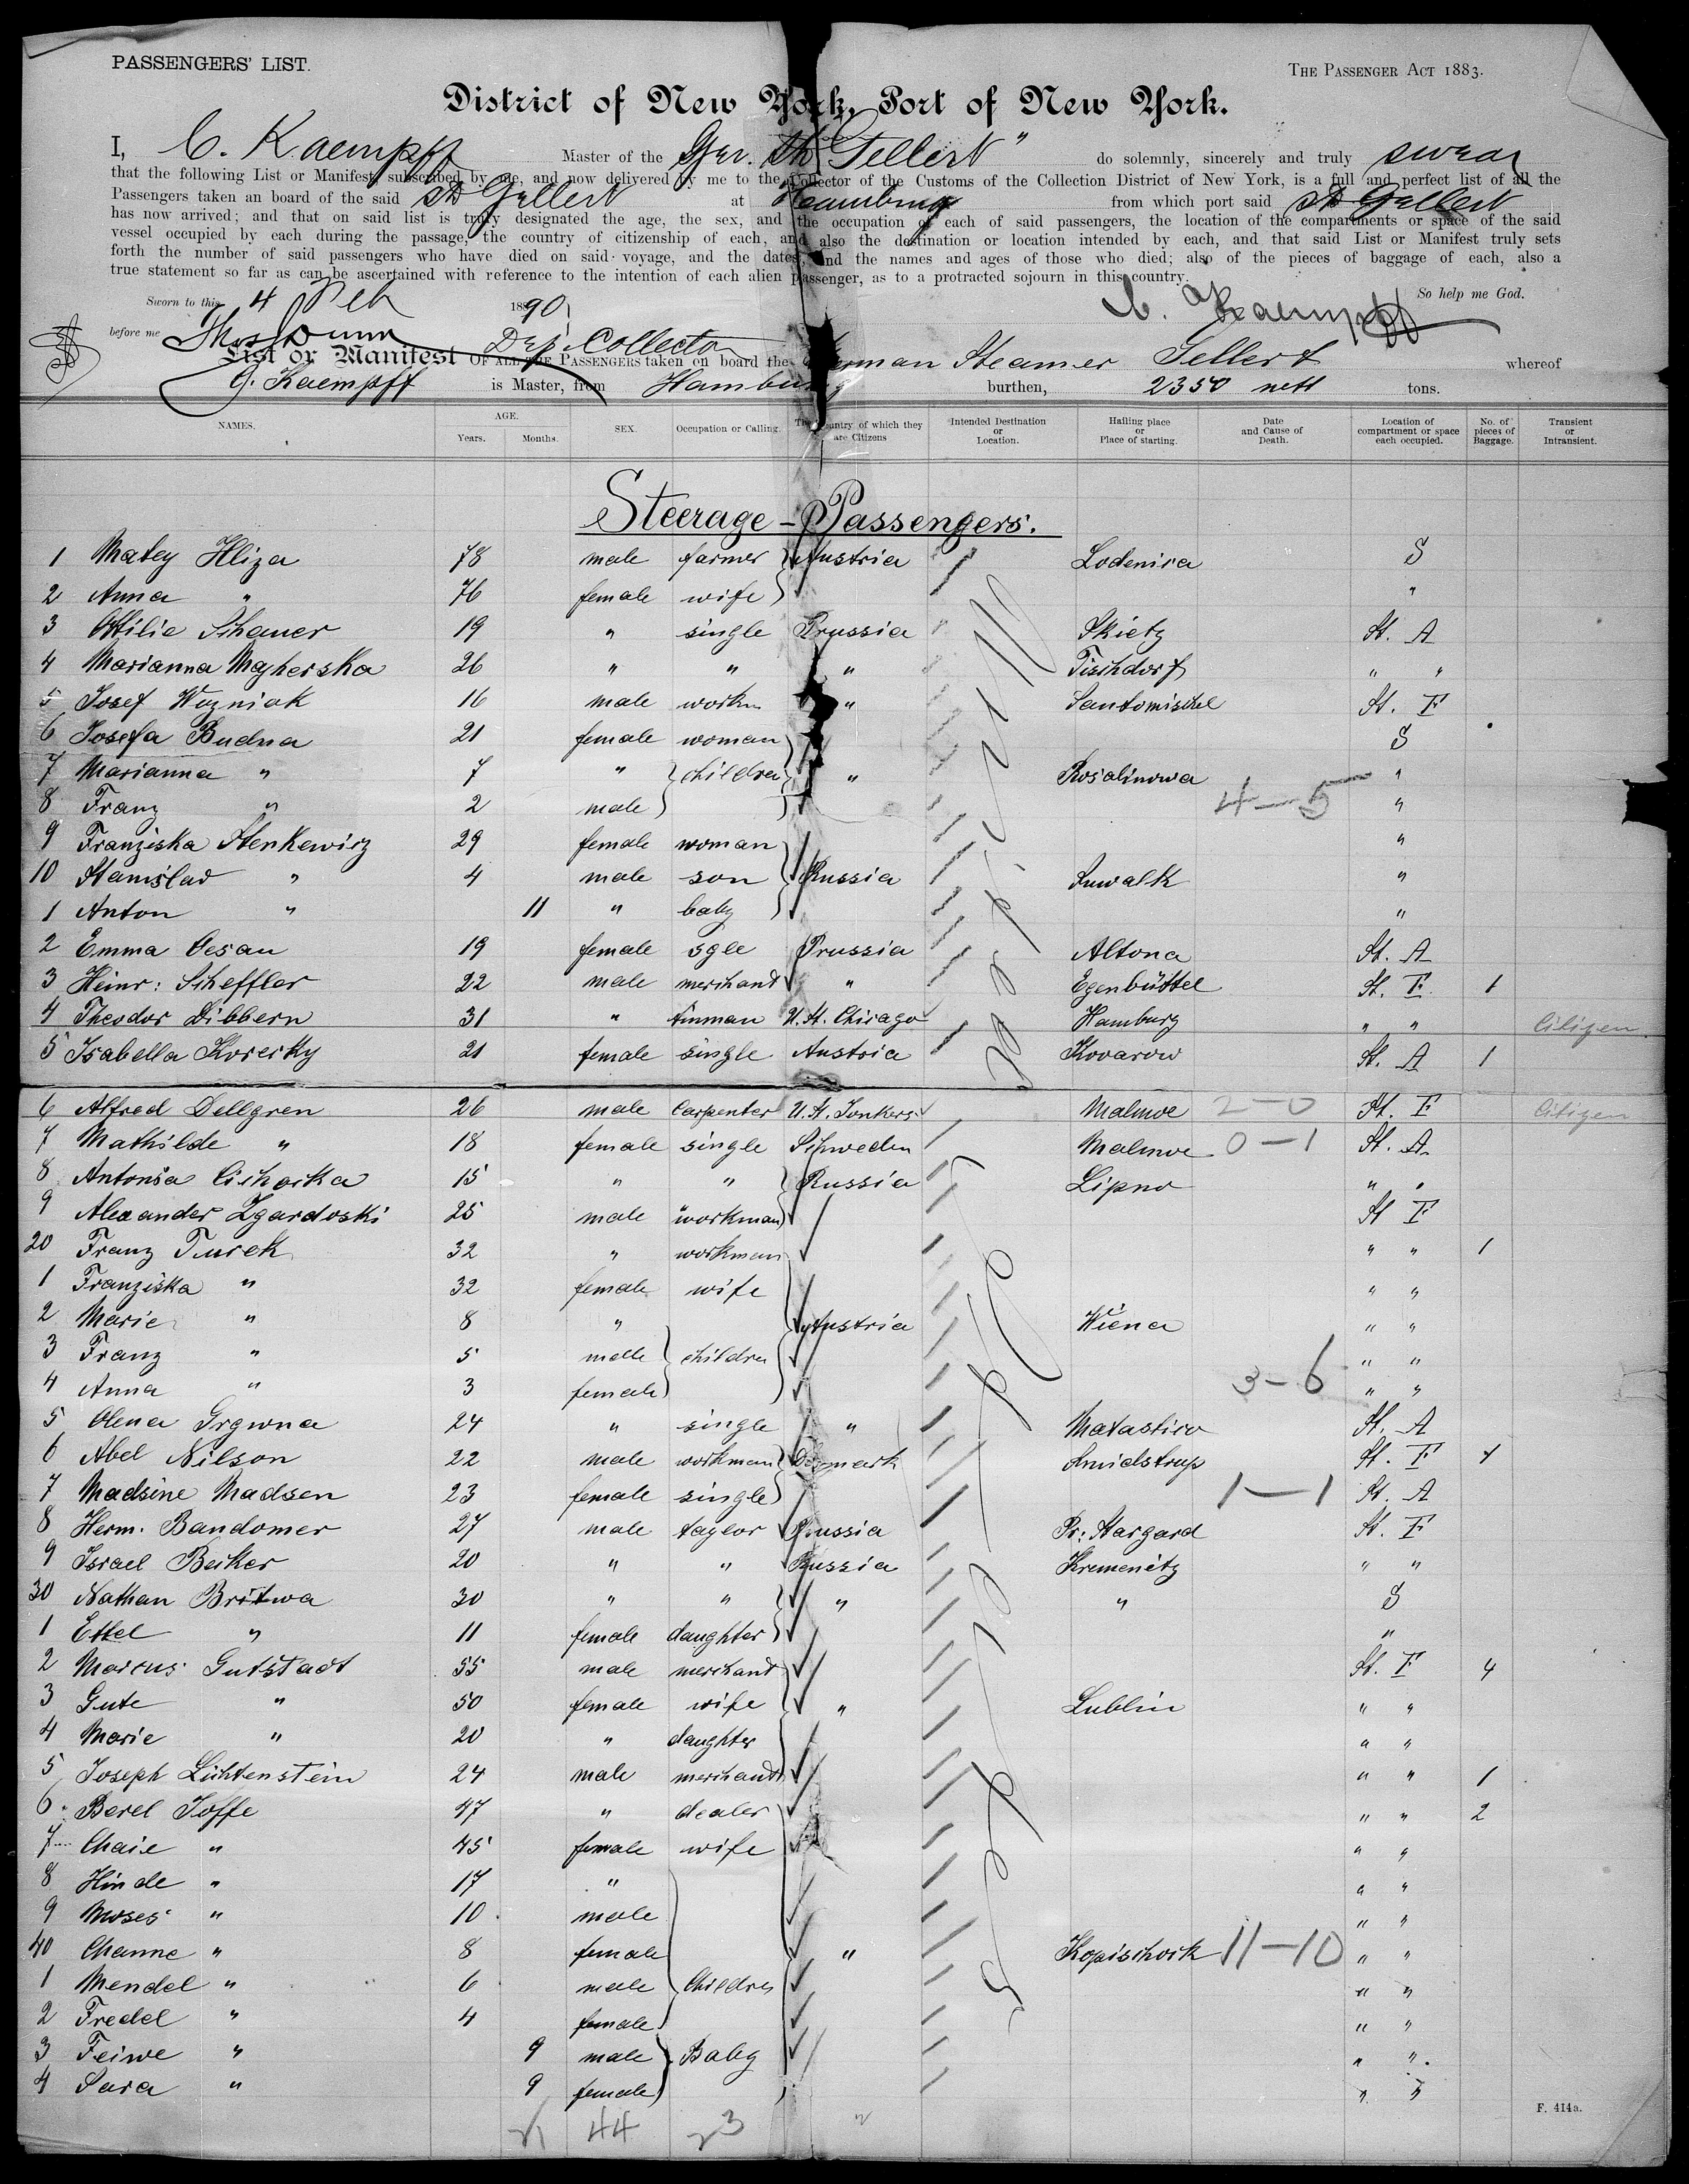 PASSENGERS' LIST.
THE PASSENGER ACT 1883.
District of New York, Port of New York.
I, C. Kaempff Master of the Ger. SS Gellert" do solemnly, sincerely and truly swear
that the following List or Manifest, subscribed by me, and now delivered by me to the Collector of the Customs of the Collection District of New York, is a full and perfect list of all the
Passengers taken an board of the said SS Gellert at Hamburg from which port said SS Gellert
has now arrived; and that on said list is truly designated the age, the sex, and the occupation of each of said passengers, the location of the compartments or space of the said
vessel occupied by each during the passage, the country of citizenship of each, and also the destination or location intended by each, and that said List or Manifest truly sets
forth the number of said passengers who have died on said voyage, and the dates, and the names and ages of those who died; also of the pieces of baggage of each, also a
true statement so far as can be ascertained with reference to the intention of each alien passenger, as to a protracted sojourn in this country.
Sworn to this 4 Feb 1890 C. Kaempff So help me God.
before me Thos Dunn Dep. Collector
List or Manifest OF ALL THE PASSENGERS taken on board the German Steamer Gellert whereof
G. Kaempff is Master, from Hamburg burthen, 2350 nett tons.
NAMES. AGE. Years. Months. SEX. Occupation or Calling. The Country of which they are Citizens Intended Destination or Location. Hailing place or Place of starting. Date and Cause of Death. Location of compartment or space each occupied. No. of pieces of Baggage. Transient or Intransient.
Steerage - Passengers.
1 Matey Hliza 78 male farmer Austria Lodenira S
2 Anna " 76 female wife "
3 Ottilie Schauer 19 " single Prussia Skietz St. A
4 Marianna Magherska 26 " " " Tischdorf " "
5 Josef Wozniak 16 male workm " Santomischel St. F
6 Josefa Budna 21 female woman S
7 Marianna " 7 " children " Rosalinowa "
8 Franz " 2 male 4-5 "
9 Franziska Stenkewicz 29 female woman "
10 Stanislad " 4 male son Russia Suwalk "
1 Anton " 11 " baby "
2 Emma Oesau 19 female sgle Prussia Altona St. A
3 Heinr: Scheffler 22 male merchant " Egenbüttel St. F 1
4 Theodor Dibbern 31 " tinman U. St. Chicago Hamburg " " Citizen
5 Isabella Korecky 21 female single Austria Kovarow St. A 1
6 Alfred Dellgren 26 male Carpenter U. St. Yonkers Malmoe 2-0 St. F Citizen
7 Mathilde " 18 female single Schweden Malmoe 0-1 St. A
8 Antonia Cichocka 15 " " Russia Lipno " "
9 Alexander Zgardoski 25 male workman St F
20 Franz Turek 32 " workman " " 1
1 Franziska " 32 female wife " "
2 Marie " 8 " Austria Wiena " "
3 Franz " 5 male children " "
4 Anna " 3 female 3-6 " "
5 Olena Grgwna 24 " single " Matastiro St. A
6 Abel Nilson 22 male workman Denmark Smidstrup St. F 1
7 Madsine Madsen 23 female single 1-1 St. A
8 Herm. Bandomer 27 male taylor Prussia Pr: Stargard St. F
9 Israel Beiker 20 " " Russia Kremenetz " "
30 Nathan Britwa 30 " " " " S
1 Ettel " 11 female daughter "
2 Marcus Gutstadt 55 male merchant St. F 4
3 Gute " 50 female wife " Lublin " "
4 Marie " 20 " daughter " "
5 Joseph Lichtenstein 24 male merchant " " 1
6 Berel Joffe 47 " dealer " " 2
7 Chaie " 45 female wife " "
8 Hinde " 17 " " "
9 Moses " 10 male " "
40 Channe " 8 female " Kopischock 11-10 " "
1 Mendel " 6 male Children " "
2 Fredel " 4 female " "
3 Feiwe " 9 male Baby " "
4 Sara " 9 female " "
44 23
F. 414a.